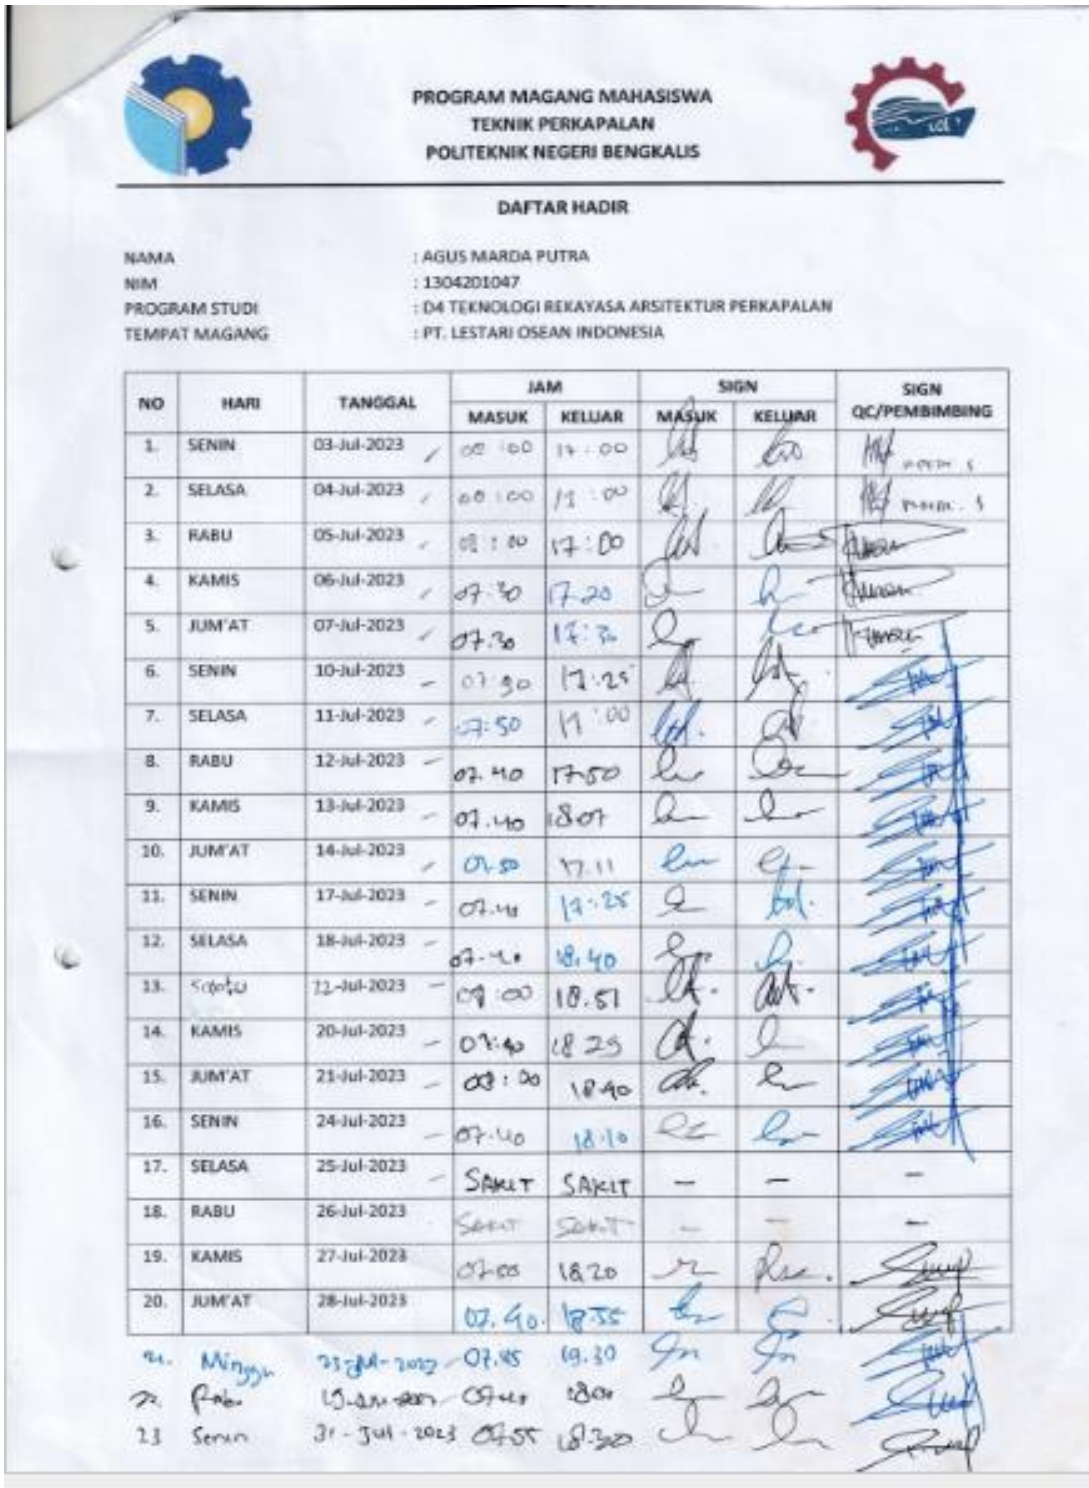 PROGRAM MAGANG MAHASISWA
TEKNIK PERKAPALAN
POLITEKNIK NEGERI BENGKALIS
DAFTAR HADIR
NAMA : AGUS MARDA PUTRA
NIM : 1304201047
PROGRAM STUDI : D4 TEKNOLOGI REKAYASA ARSITEKTUR PERKAPALAN
TEMPAT MAGANG : PT. LESTARI OSEAN INDONESIA
NO HARI TANGGAL JAM SIGN SIGN QC/PEMBIMBING
MASUK KELUAR MASUK KELUAR
1. SENIN 03-Jul-2023 08:00 17:00
2. SELASA 04-Jul-2023 08:00 17:00
3. RABU 05-Jul-2023 08:00 17:00
4. KAMIS 06-Jul-2023 07:30 17.20
5. JUM'AT 07-Jul-2023 07.30
6. SENIN 10-Jul-2023 17:25
7. SELASA 11-Jul-2023 07:50 17:00
8. RABU 12-Jul-2023 07.40 17.50
9. KAMIS 13-Jul-2023 07.40 18.07
10. JUM'AT 14-Jul-2023 07.50 17.11
11. SENIN 17-Jul-2023 07.40 17:25
12. SELASA 18-Jul-2023 07.40 18.40
13. Sabtu 22-Jul-2023 08:00 18.51
14. KAMIS 20-Jul-2023 07:40
15. JUM'AT 21-Jul-2023 08:00 18.40
16. SENIN 24-Jul-2023 07.40 18.10
17. SELASA 25-Jul-2023 SAKIT SAKIT – – –
18. RABU 26-Jul-2023 SAKIT SAKIT – – –
19. KAMIS 27-Jul-2023 18.20
20. JUM'AT 28-Jul-2023 07.40 18.55
21. Minggu 07.45 19.30
22. Rabu
23 Senin 31-Jul-2023 07.55 18.30